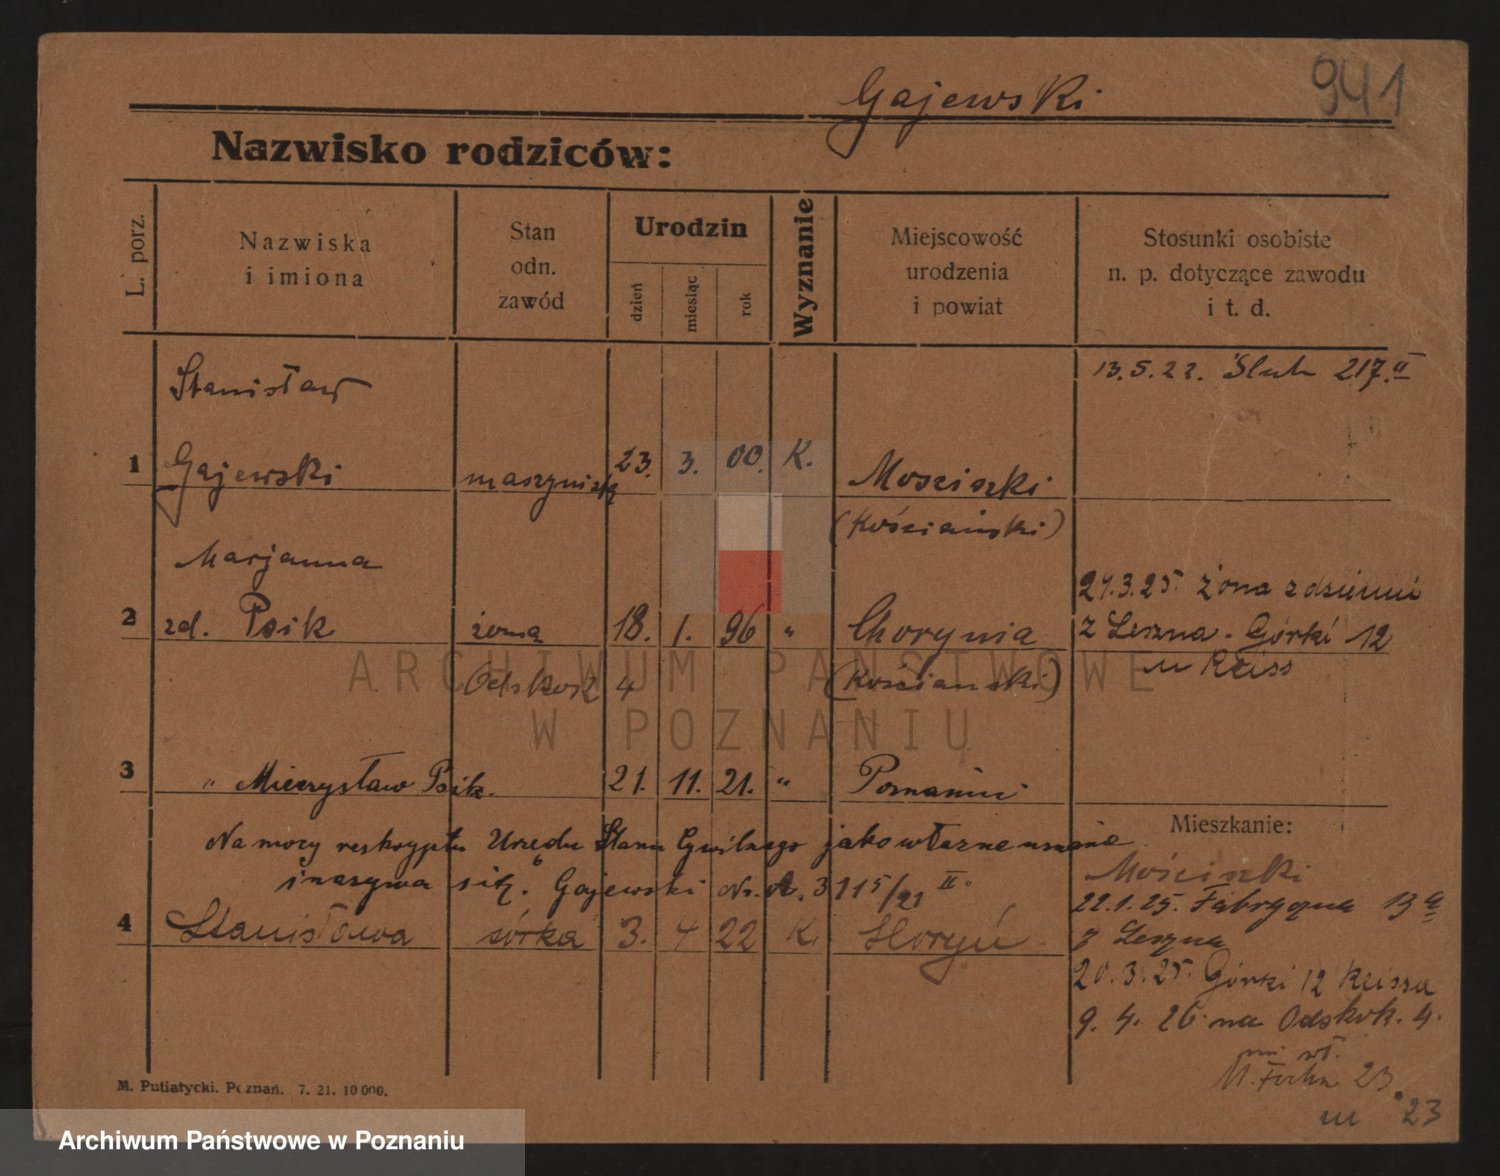 Gajewski
941
Nazwisko rodziców:
L. porz.
Nazwiska
i imiona
Stan
odn.
zawód
Urodzin
dzień
miesiąc
rok
Wyznanie
Miejscowość
urodzenia
i powiat
Stosunki osobiste
n. p. dotyczące zawodu
i t. d.
Stanisław
13. 5. 22. Ślub 217. II
1 Gajewski maszynista 23. 3. 00. K. Mościszki
(Kościański)
Marjanna
21. 3. 25. żona z dziećmi
2 zd. Psik żona 18. 1. 96 " Chorynia z Leszna. Górki 12
u Reiss
Odskok 4 (Kościański)
3 " Mieczysław Psik. 21. 11. 21. " Poznaniu
Na mocy reskryptu Urzędu Stanu Cywilnego jako własne uznanie
i nazywa się „Gajewski" Nr. A. 3115/23 II.
4 Stanisława córka 3. 4 22 K. Horyń
Mieszkanie:
Mościszki
22. 1. 25. Fabryczna 13a
z Leszna
20. 3. 25. Górki 12 Reissa
9. 4. 26 na Odskok. 4.
M. Focha 23
23
M. Putiatycki. Poznań. 7. 21. 10 000.
ARCHIWUM PAŃSTWOWE
W POZNANIU
Archiwum Państwowe w Poznaniu